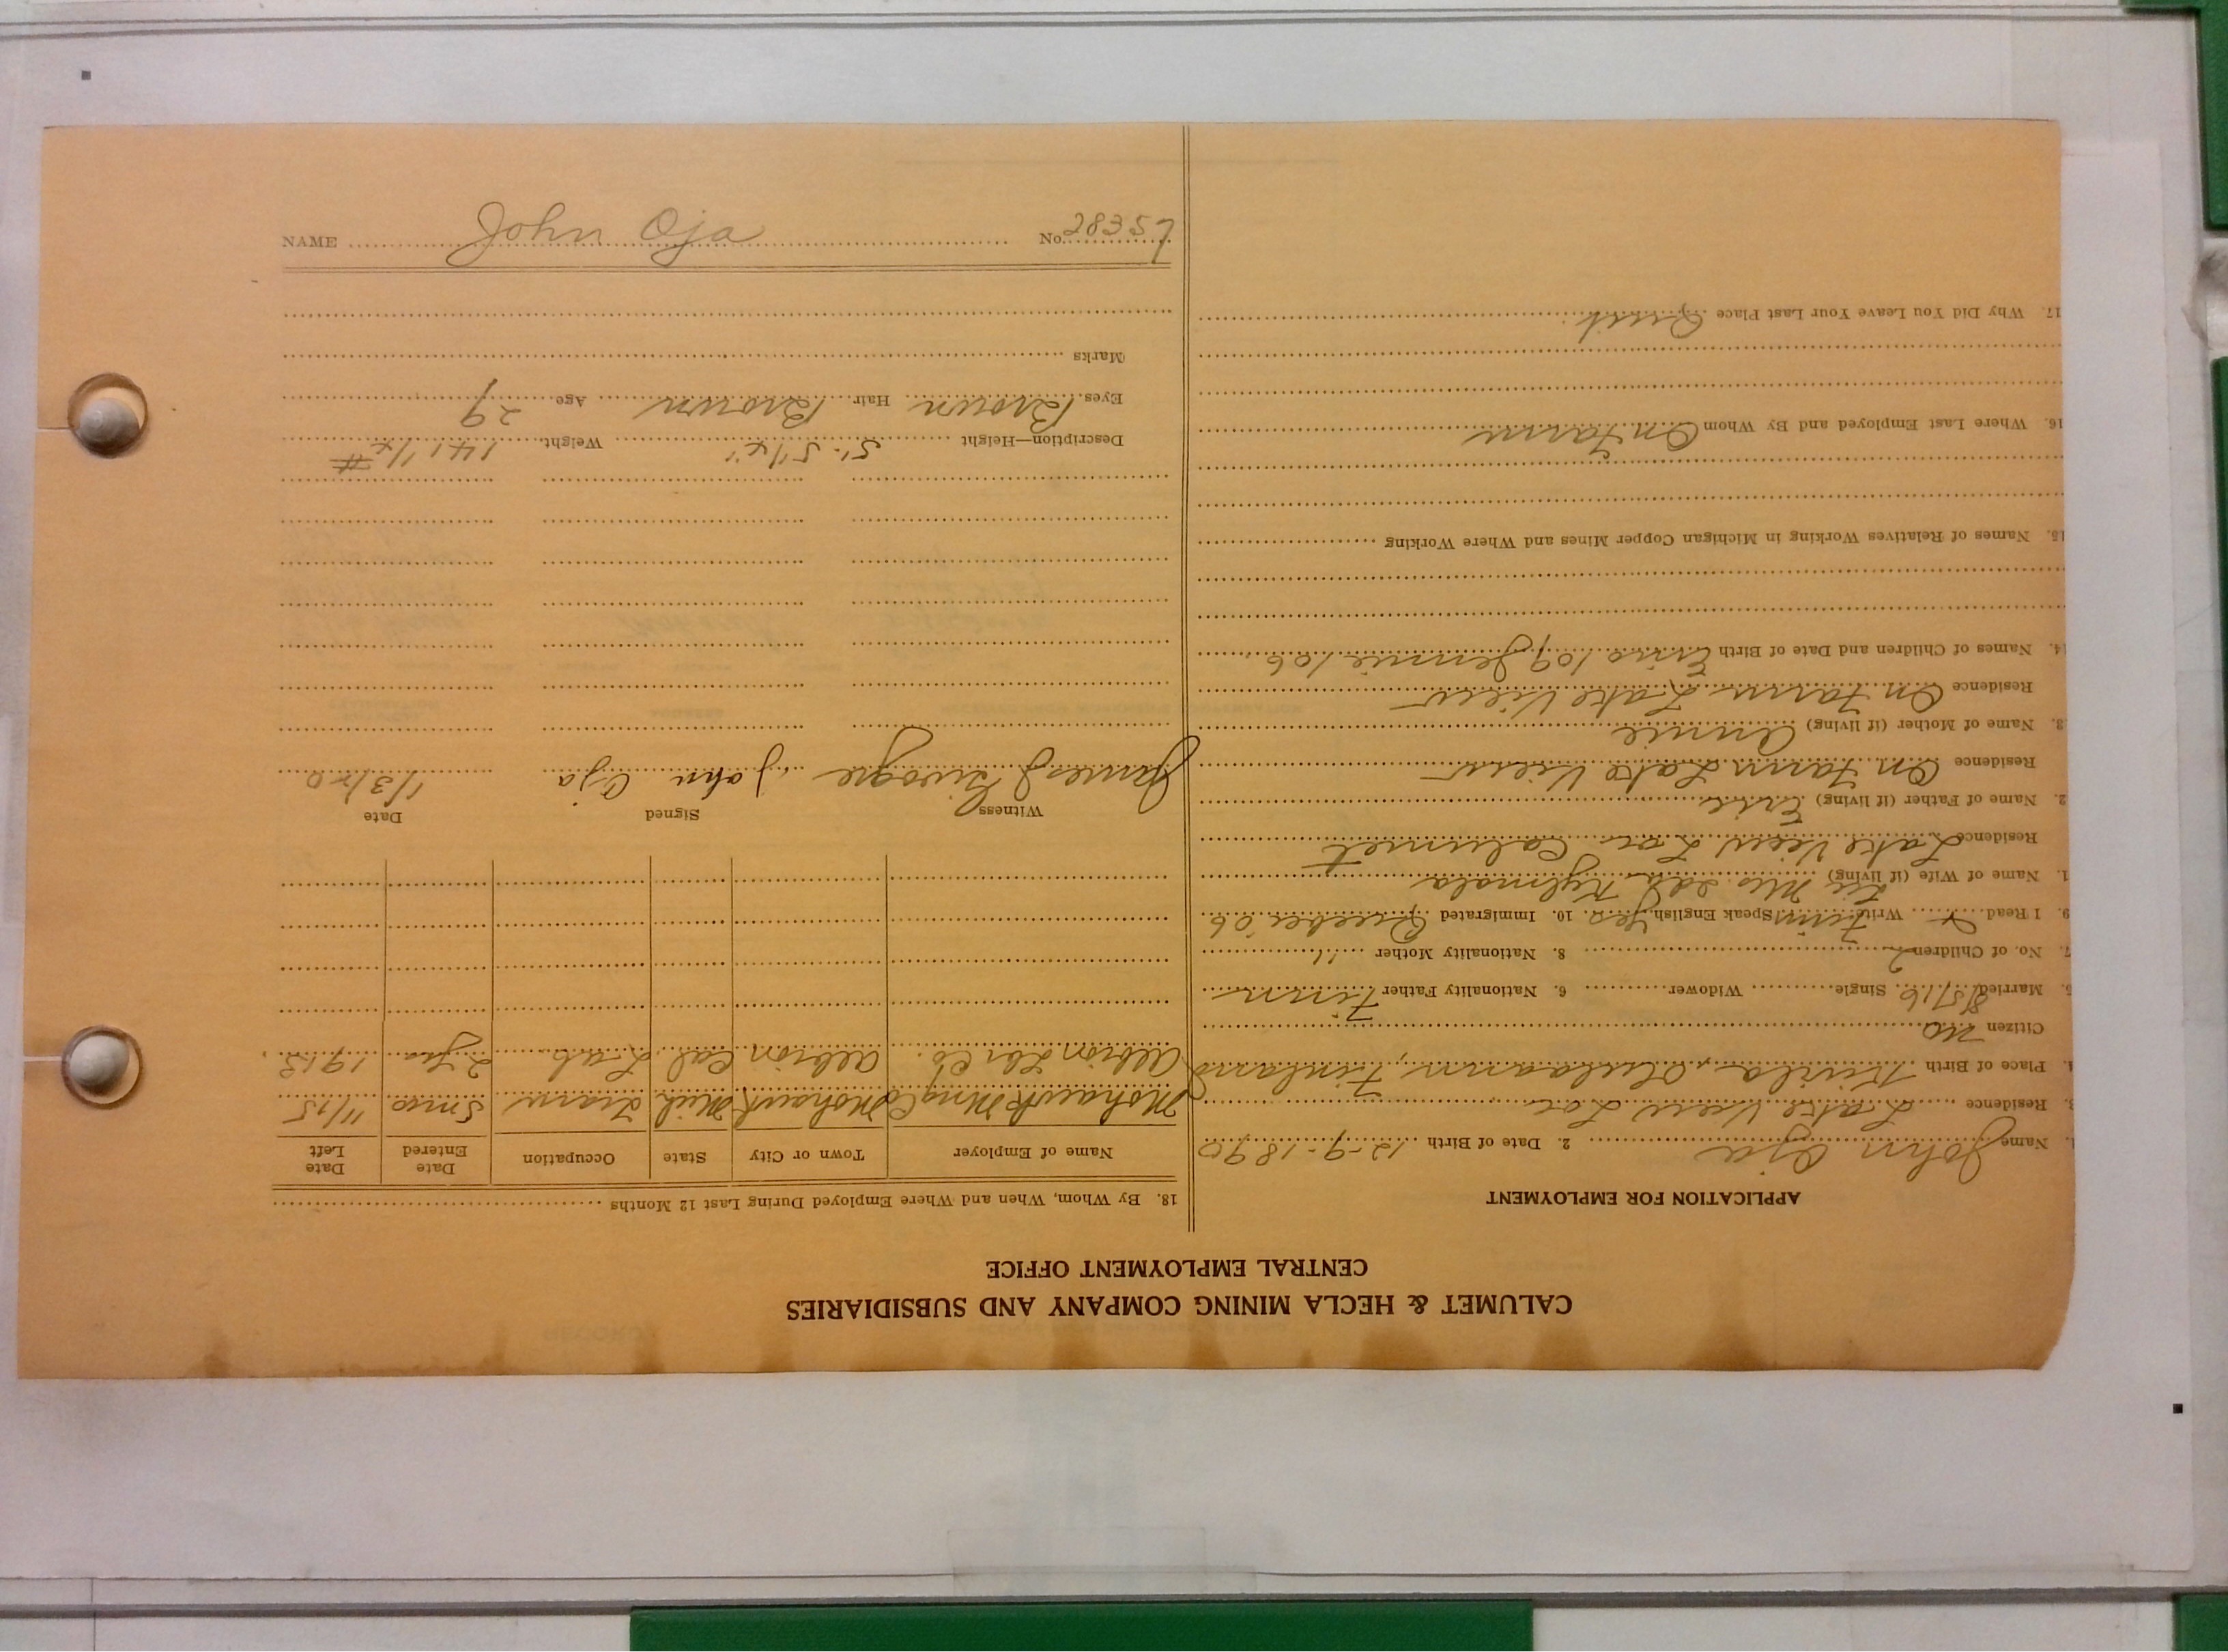 CALUMET & HECLA MINING COMPANY AND SUBSIDIARIES
CENTRAL EMPLOYMENT OFFICE
APPLICATION FOR EMPLOYMENT
1. Name John Oja 2. Date of Birth 12-9-1890
3. Residence Lake View Loc
4. Place of Birth Finland
Citizen no
5. Married 8/5/16 Single Widower 6. Nationality Father Finn
7. No. of Children 2 8. Nationality Mother "
9. I Read x Write Finn Speak English Yes 10. Immigrated Quebec '06
11. Name of Wife (if living) Mrs Ida Kylmala
Residence Lake View Loc. Calumet
12. Name of Father (if living) Eric
Residence On Farm Lake View
13. Name of Mother (if living) Annie
Residence On Farm Lake View
14. Names of Children and Date of Birth Eino 109 Jennie 106
15. Names of Relatives Working in Michigan Copper Mines and Where Working
16. Where Last Employed and By Whom On Farm
17. Why Did You Leave Your Last Place Quit
18. By Whom, When and Where Employed During Last 12 Months
Name of Employer Town or City State Occupation Date Entered Date Left
Mohawk Mng Co Mohawk Mich Tram 5 mos 11/15
Albion Lbr Co. Albion Cal. Lab. 2 Yrs 1913
Witness Signed Date
James J John Oja 1/3/20
Description—Height 5'-5 1/4" Weight 141 1/4 #
Eyes Brown Hair Brown Age 29
Marks
NAME John Oja No. 28357